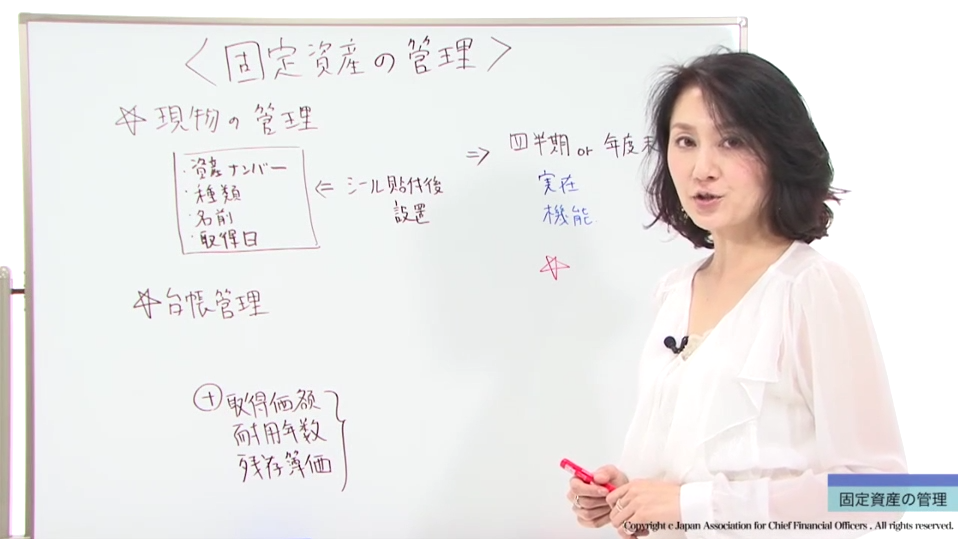 〈固定資産の管理〉
☆現物の管理
・資産ナンバー
・種類
・名前
・取得日
⇐ シール貼付後
設置
⇒ 四半期 or 年度末
実在
機能
☆
☆台帳管理
⊕取得価額
耐用年数
残存簿価
固定資産の管理
Copyright c Japan Association for Chief Financial Officers , All rights reserved.